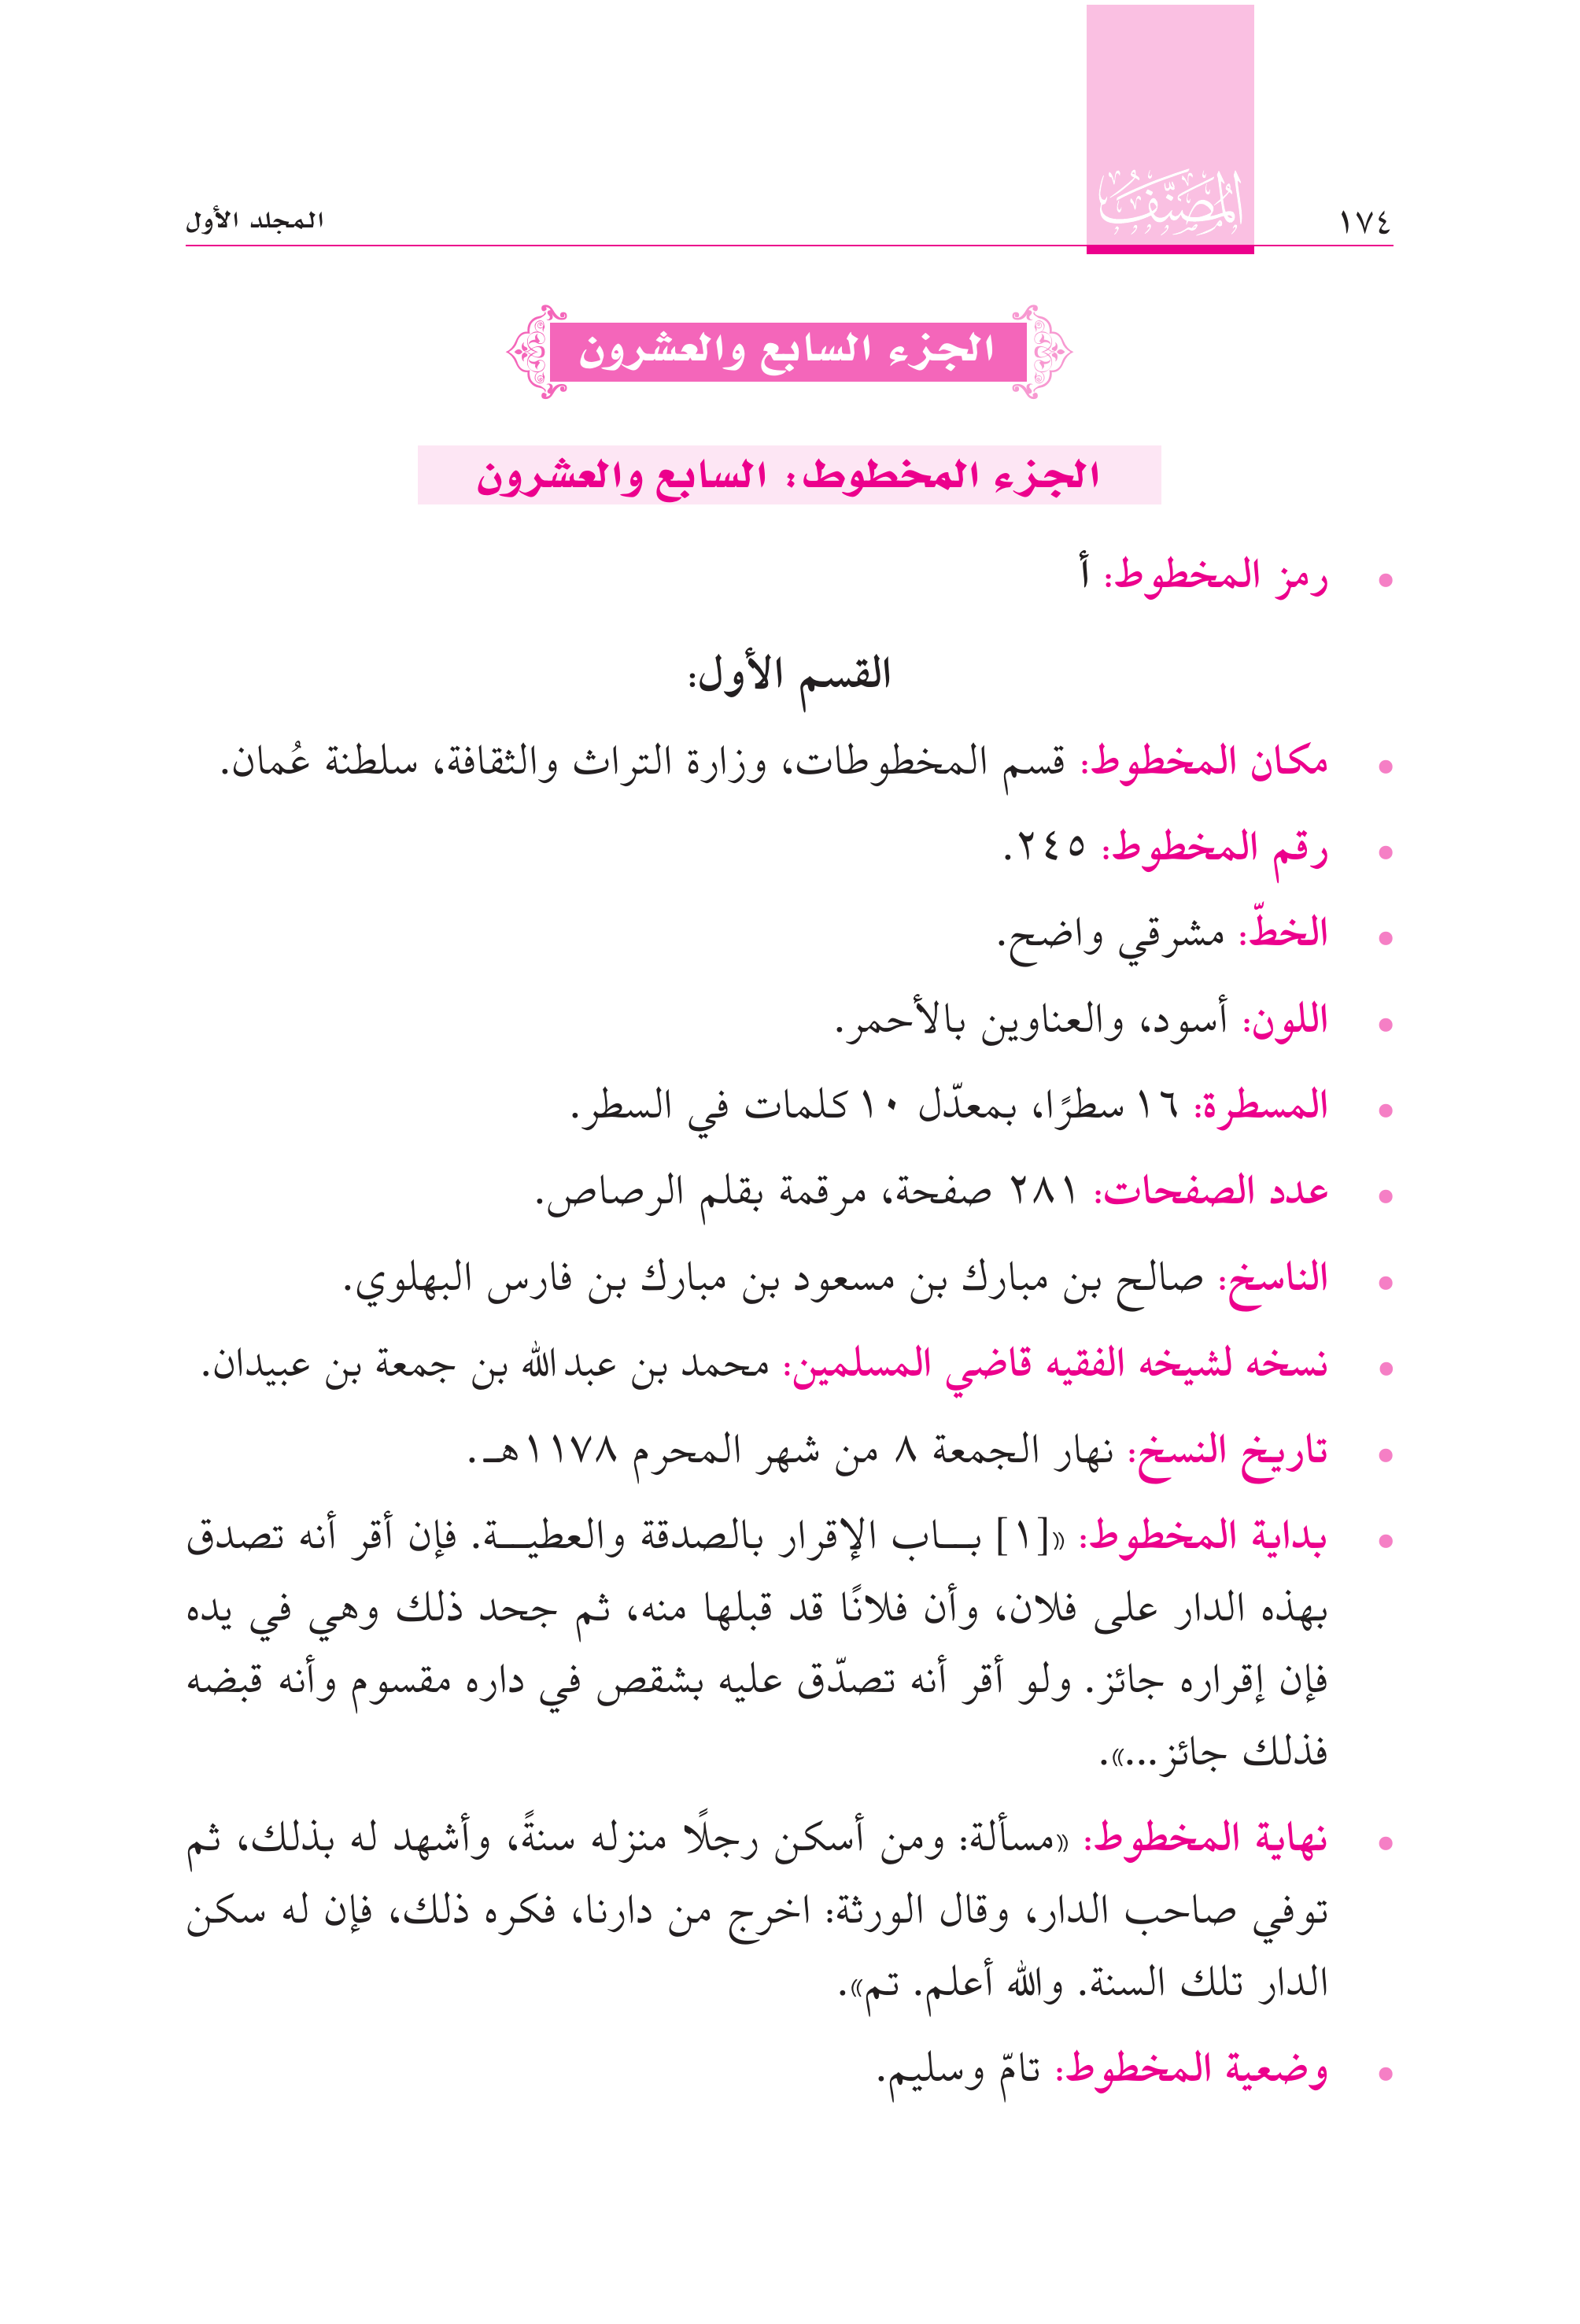 ١٧٤
المصنف
المجلد الأول
الجزء السابع والعشرون
الجزء المخطوط: السابع والعشرون
• رمز المخطوط: أ
القسم الأول:
• مكان المخطوط: قسم المخطوطات، وزارة التراث والثقافة، سلطنة عُمان.
• رقم المخطوط: ٢٤٥.
• الخطّ: مشرقي واضح.
• اللون: أسود، والعناوين بالأحمر.
• المسطرة: ١٦ سطرًا، بمعدّل ١٠ كلمات في السطر.
• عدد الصفحات: ٢٨١ صفحة، مرقمة بقلم الرصاص.
• الناسخ: صالح بن مبارك بن مسعود بن مبارك بن فارس البهلوي.
• نسخه لشيخه الفقيه قاضي المسلمين: محمد بن عبدالله بن جمعة بن عبيدان.
• تاريخ النسخ: نهار الجمعة ٨ من شهر المحرم ١١٧٨هـ.
• بداية المخطوط: «[١] بـــاب الإقرار بالصدقة والعطيـــة. فإن أقر أنه تصدق
بهذه الدار على فلان، وأن فلانًا قد قبلها منه، ثم جحد ذلك وهي في يده
فإن إقراره جائز. ولو أقر أنه تصدّق عليه بشقص في داره مقسوم وأنه قبضه
فذلك جائز...».
• نهاية المخطوط: «مسألة: ومن أسكن رجلًا منزله سنةً، وأشهد له بذلك، ثم
توفي صاحب الدار، وقال الورثة: اخرج من دارنا، فكره ذلك، فإن له سكن
الدار تلك السنة. والله أعلم. تم».
• وضعية المخطوط: تامّ وسليم.